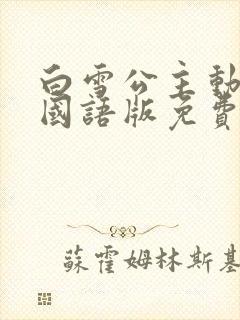 白雪公主動
國語版免費
蘇霍姆林斯基